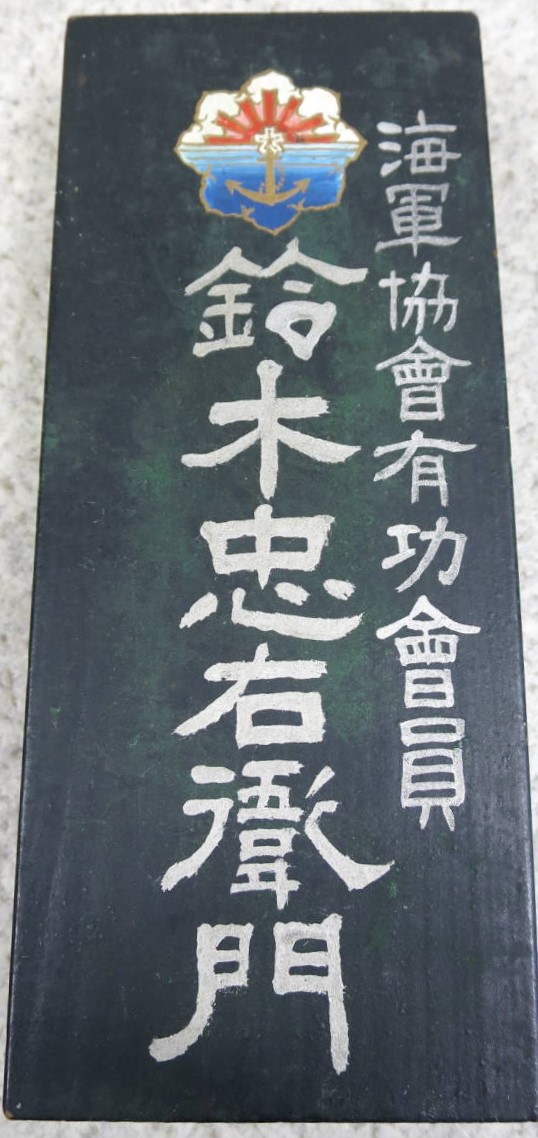 海軍協會有功會員
鈴木忠右衞門